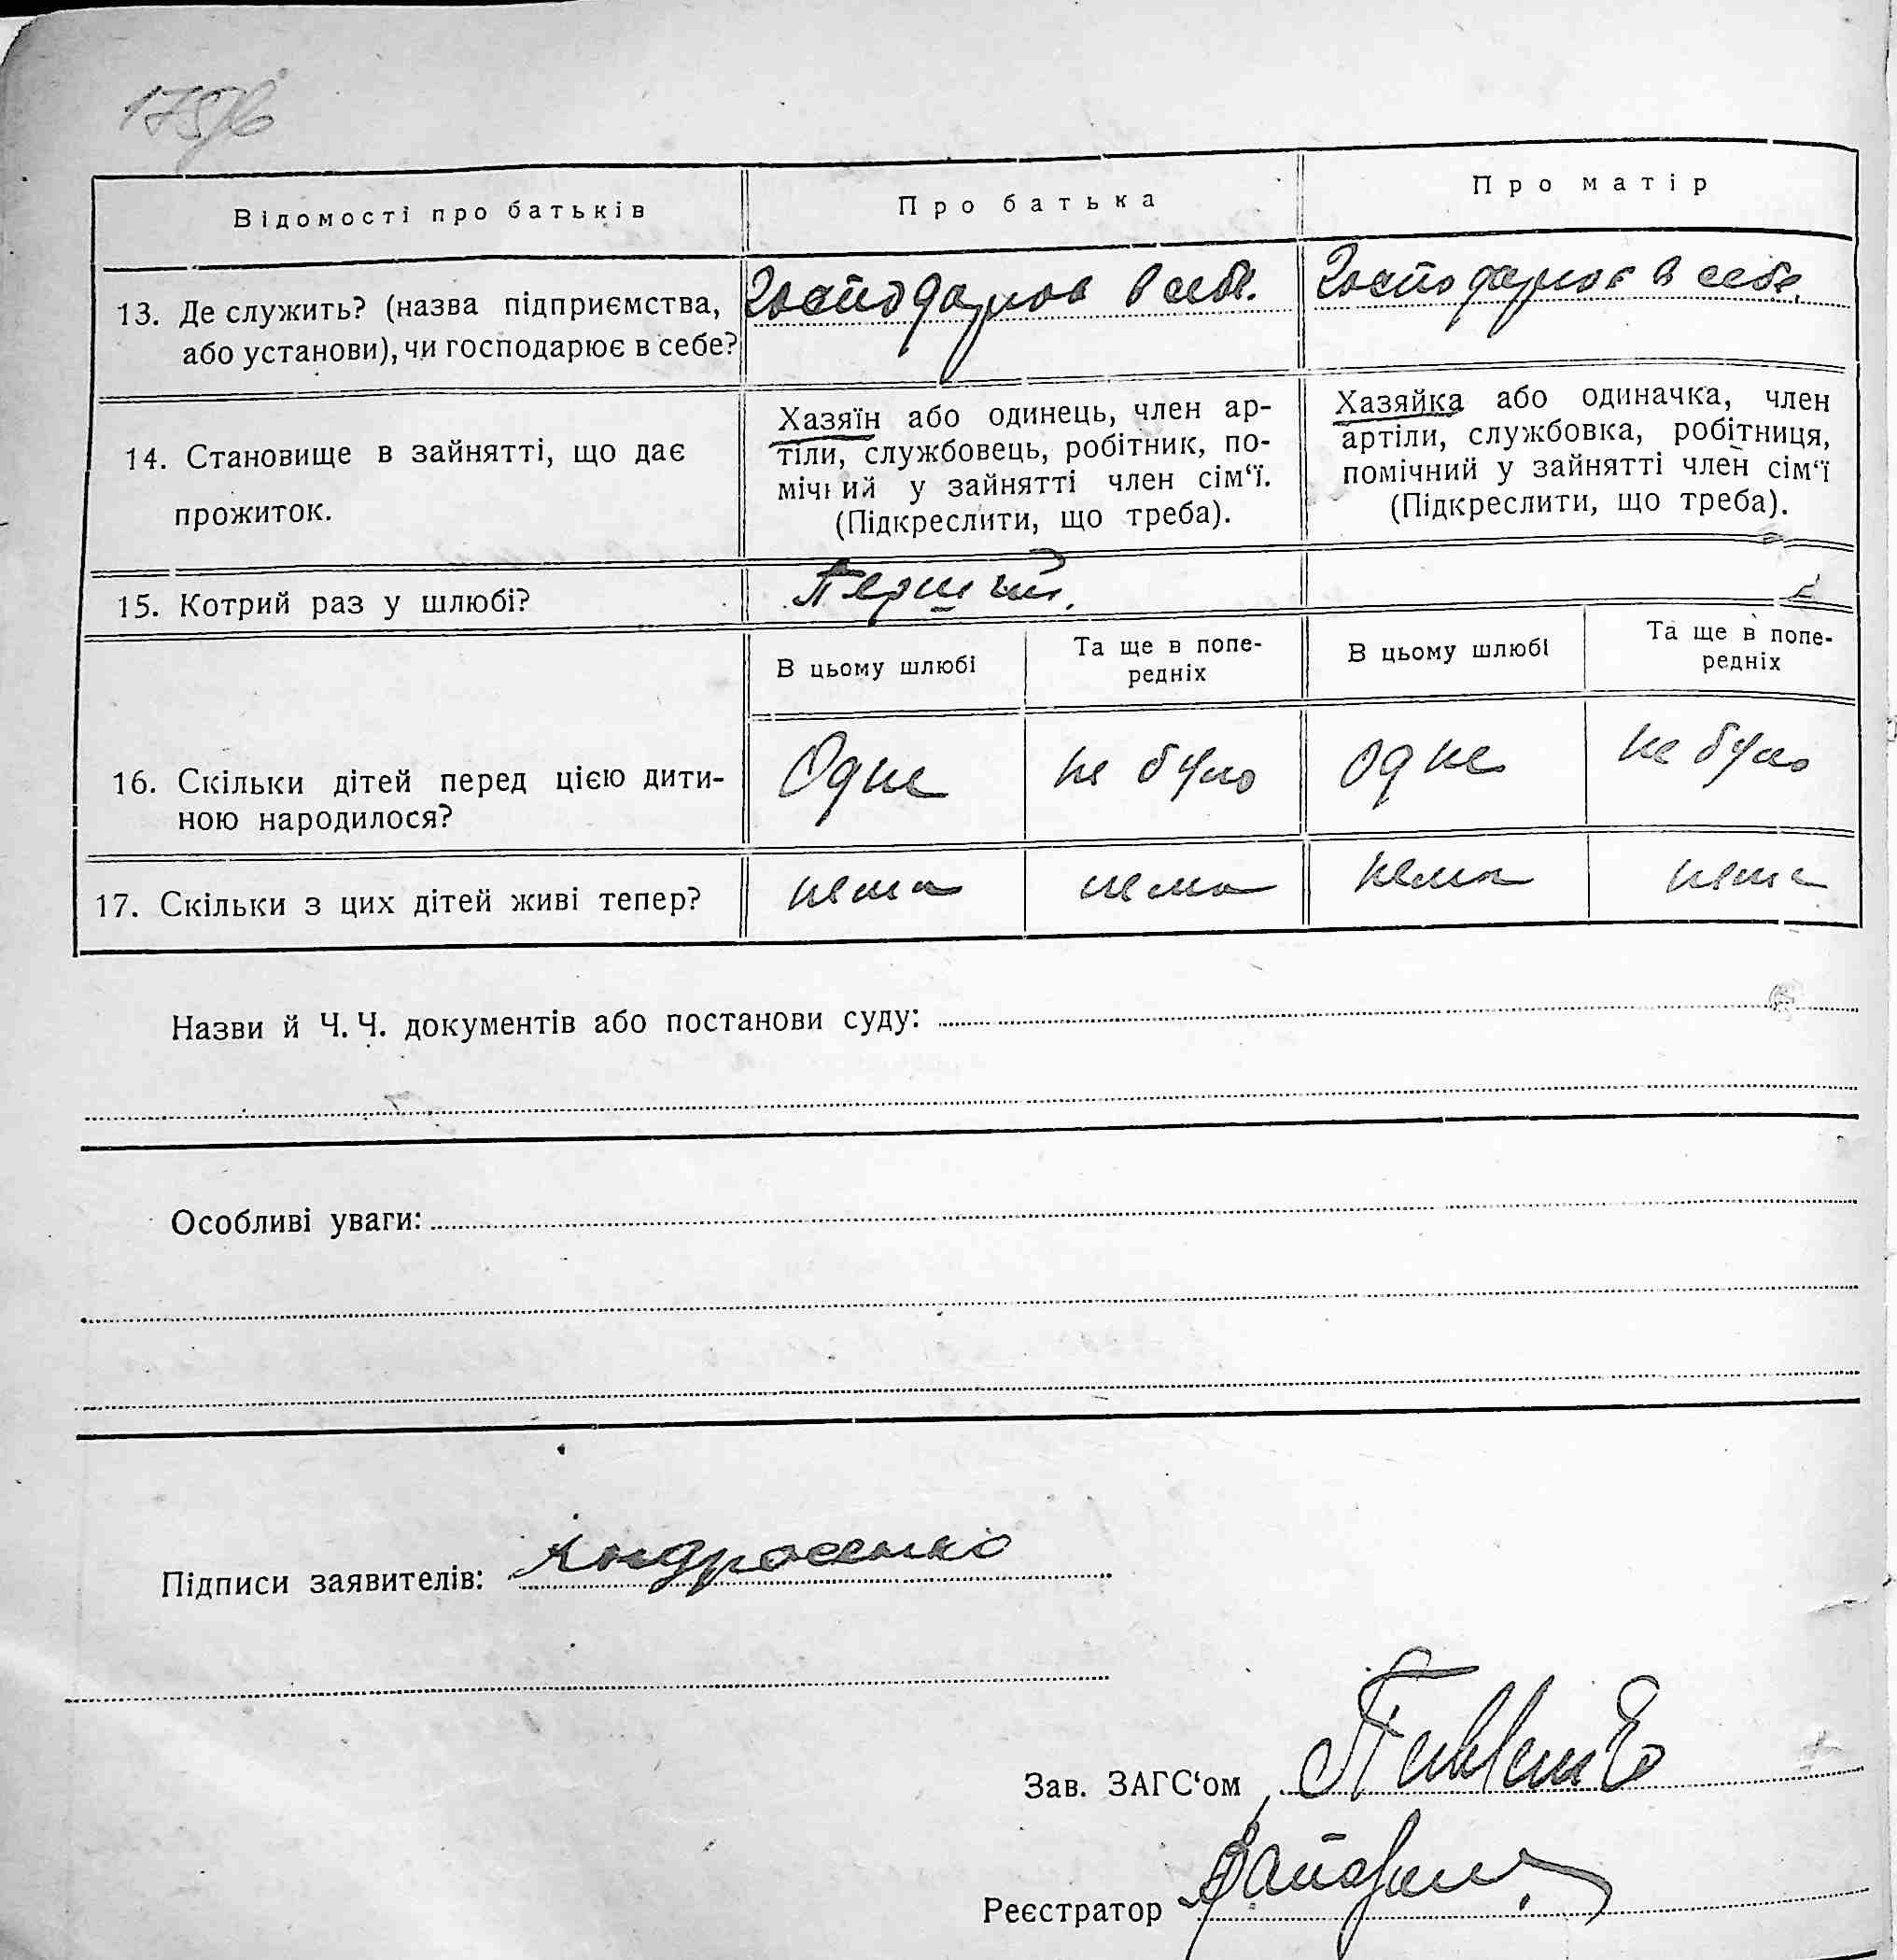 Відомості про батьків
Про батька
Про матір
13. Де служить? (назва підприємства,
або установи), чи господарює в себе?
Господарює в себе.
Господарює в себе.
14. Становище в зайнятті, що дає
прожиток.
Хазяїн або одинець, член ар-
тіли, службовець, робітник, по-
мічний у зайнятті член сім‘ї.
(Підкреслити, що треба).
Хазяйка або одиначка, член
артіли, службовка, робітниця,
помічний у зайнятті член сім‘ї
(Підкреслити, що треба).
15. Котрий раз у шлюбі?
Перший.
В цьому шлюбі
Та ще в попе-
редніх
В цьому шлюбі
Та ще в попе-
редніх
16. Скільки дітей перед цією дити-
ною народилося?
Одне
не було
одне
не було
17. Скільки з цих дітей живі тепер?
нема
нема
нема
нема
Назви й Ч. Ч. документів або постанови суду:
Особливі уваги:
Підписи заявителів: Андросенко
Зав. ЗАГС‘ом
Реєстратор